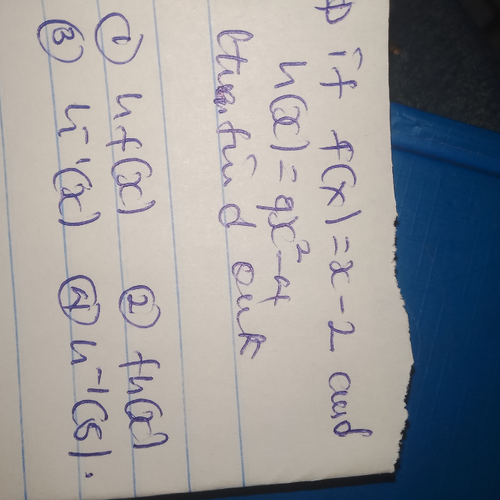 if f(x) = x - 2 and
h(x) = 9x² - 4
then find out
① hf(x) ② fh(x)
③ h⁻¹(x) ④ h⁻¹(5).